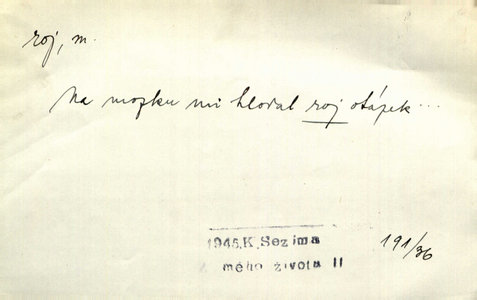 roj, m.
Na mozku mi hlodal roj otázek ...
1945 K. Sezima
mého života II
191/36